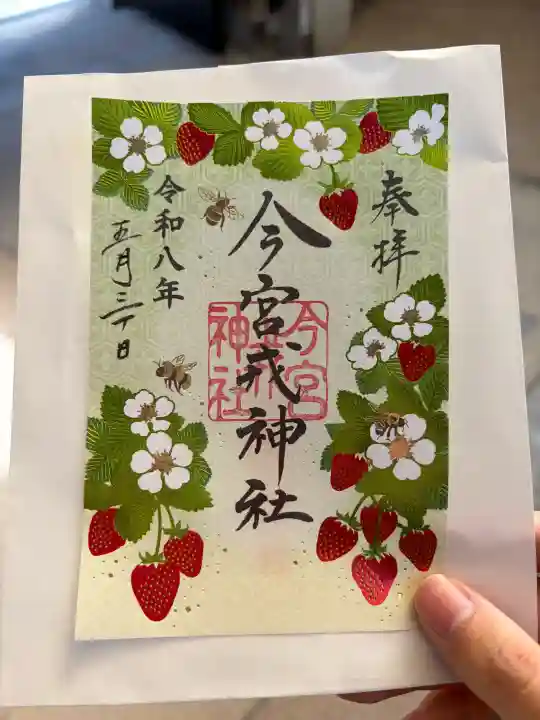 奉拝
今宮戎神社
今宮戎神社
令和八年
五月三十日